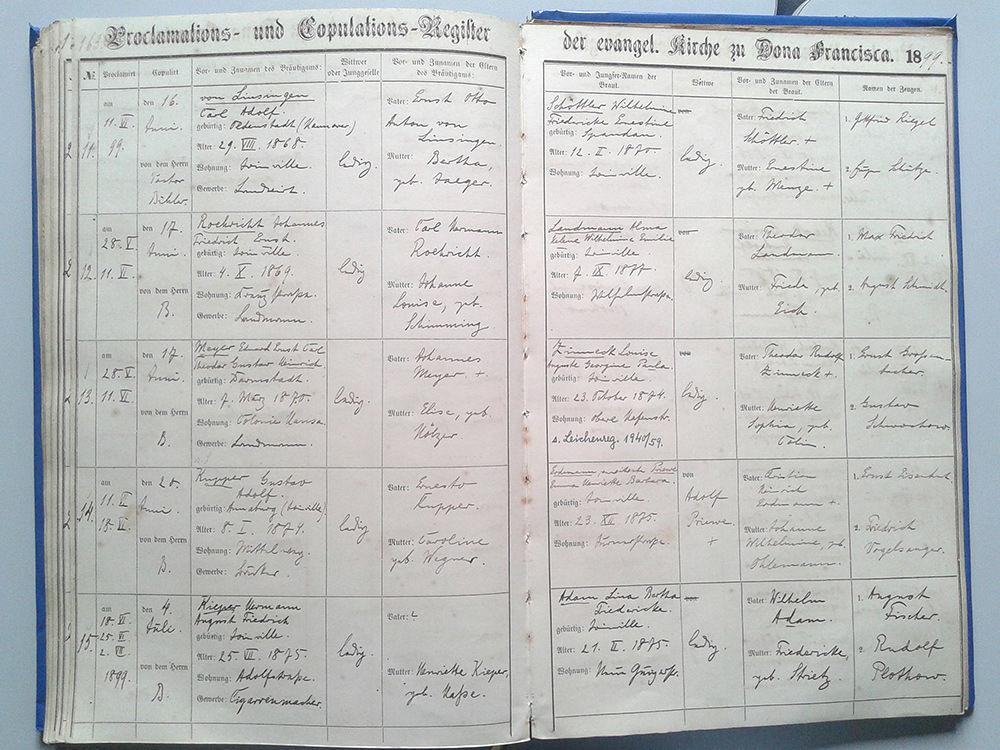 Proclamations- und Copulations-Register
der evangel. Kirche zu Dona Francisca. 1899.
№
Proclamirt
Copulirt
Vor- und Zunamen des Bräutigams:
Wittwer
oder Junggeselle
Vor- und Zunamen der Eltern
des Bräutigams:
Vor- und Jungfer-Namen der
Braut.
Wittwe
Vor- und Zunamen der Eltern
der Braut.
Namen der Zeugen.
11.
am
11. VI.
99.
den 16.
Juni.
von dem Herrn
Pastor
Bühler.
von Linsingen
Carl Adolf.
gebürtig: Oldenstadt (Hannover)
Alter: 29. VIII. 1868.
Wohnung: Joinville.
Gewerbe: Landwirth.
ledig.
Vater: Ernst Otto
Anton von
Linsingen.
Mutter: Bertha,
geb. Jaeger.
Schöttler Wilhelmine
Friedericke Ernestine
gebürtig: Spandau.
Alter: 12. II. 1870.
Wohnung: Joinville.
von
ledig.
Vater: Friedrich
Schöttler +
Mutter: Ernestine
geb. Menze +
1. Gottfried Riegel
2. Schütze.
12.
am
28. V.
11. VI.
den 17.
Juni.
von dem Herrn
B.
Rockricht Johannes
Friedrich Ernst.
gebürtig: Joinville.
Alter: 4. X. 1869.
Wohnung:
Gewerbe: Landmann.
ledig
Vater: Carl Hermann
Rockricht.
Mutter: Johanne
Louise, geb.
Schimming.
Landmann Alma
Helene Wilhelmine Emilie
gebürtig: Joinville.
Alter: 7. IX. 1877.
Wohnung: Wilhelmstraße.
von
ledig
Vater: Theodor
Landmann.
Mutter: Frieda, geb.
Eich.
1. Max Friedrich
2. August Schmidt.
13.
am
28. V.
11. VI.
den 17.
Juni.
von dem Herrn
B.
Meyer Eduard Ernst Carl
Theodor Gustav Heinrich.
gebürtig: Darmstadt.
Alter: 7. März 1870.
Wohnung: Colonie Hansa.
Gewerbe: Landmann.
ledig.
Vater: Johannes
Meyer. +
Mutter: Elise, geb.
Nötzer.
Zimmeck Louise
Auguste Georgine Paula.
gebürtig: Joinville.
Alter: 23. October 1874.
Wohnung: Obere Hafenstr.
s. Leichenreg. 1940/59.
von
ledig.
Vater: Theodor Rudolf
Zimmeck +.
Mutter: Henriette
Sophia, geb.
Colin.
1. Ernst
2. Gustav
14.
am
11. VI.
18. VI.
den 20.
Juni.
von dem Herrn
B.
Kupper Gustav
Adolf.
gebürtig: Annaburg (Joinville)
Alter: 8. I. 1874.
Wohnung: Mittelweg.
Gewerbe:
ledig
Vater: Ernesto
Kupper.
Mutter: Caroline
geb. Wegner.
Erdmann
Emma Henriette Barbara.
gebürtig: Joinville.
Alter: 23. XII. 1875.
Wohnung:
von
Adolf
Priewe.
+
Vater: Christian
Heinrich
Erdmann +.
Mutter: Johanne
Wilhelmine, geb.
Ohlemann.
1. Ernst Eisendeck
2. Friedrich
Vogelsanger.
15.
am
18. VI.
25. VI.
2. VII.
1899.
den 4.
Juli.
von dem Herrn
B.
Kieper Hermann
August Friedrich
gebürtig: Joinville.
Alter: 25. VII. 1875.
Wohnung: Adolfstraße.
Gewerbe: Cigarrenmacher.
ledig.
Vater:
Mutter: Henriette Kieper,
geb. Haße.
Adam Lina Bertha
Friedericke.
gebürtig: Joinville.
Alter: 21. II. 1875.
Wohnung:
von
ledig.
Vater: Wilhelm
Adam.
Mutter: Friedericke,
geb. Strietz.
1. August
Fischer.
2. Rudolf
Plothow.